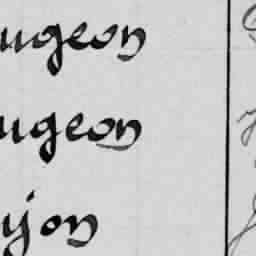 ugeon
ugeon
yon